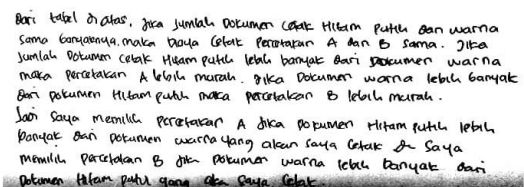 Dari tabel diatas, jika jumlah Dokumen Cetak Hitam Putih Dan warna
sama banyaknya, maka biaya Cetak Percetakan A dan B sama. Jika
Jumlah Dokumen Cetak Hitam putih lebih banyak dari Dokumen warna
maka Percetakan A lebih murah. Jika Dokumen warna lebih banyak
Dari Dokumen Hitam putih maka percetakan B lebih murah.
Jadi Saya memilih percetakan A Jika Dokumen Hitam putih lebih
banyak Dari Dokumen warna yang akan saya Cetak Saya
memilih Percetakan B Jika Dokumen warna lebih banyak dari
Dokumen Hitam putih yang saya Cetak.